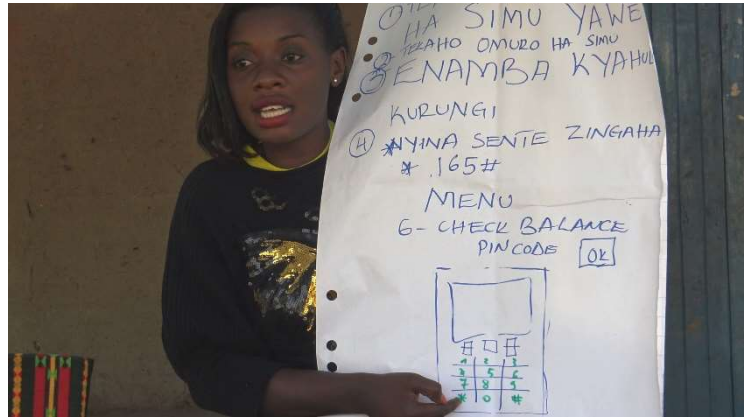 ① TE
HA SIMU YAWE
② TEKAHO OMURO HA SIMU
③ ENAMBA KYAHUL
KURUNGI
④ NYINA SENTE ZINGAHA
* .165#
MENU
6- CHECK BALANCE
PINCODE OK
1 2 3
4 5 6
7 8 9
* 0 #